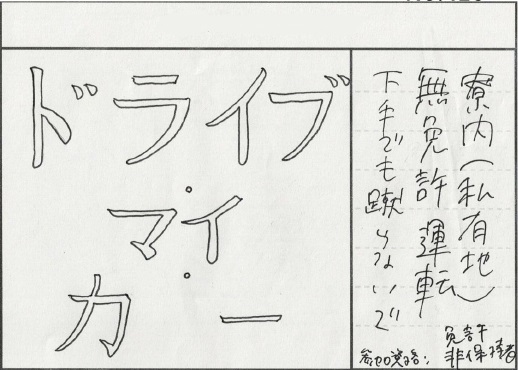 ドライブ
・
マイ
・
カー
寮内(私有地)
無免許運転
下手でも蹴らないで
参加資格:免許非保持者